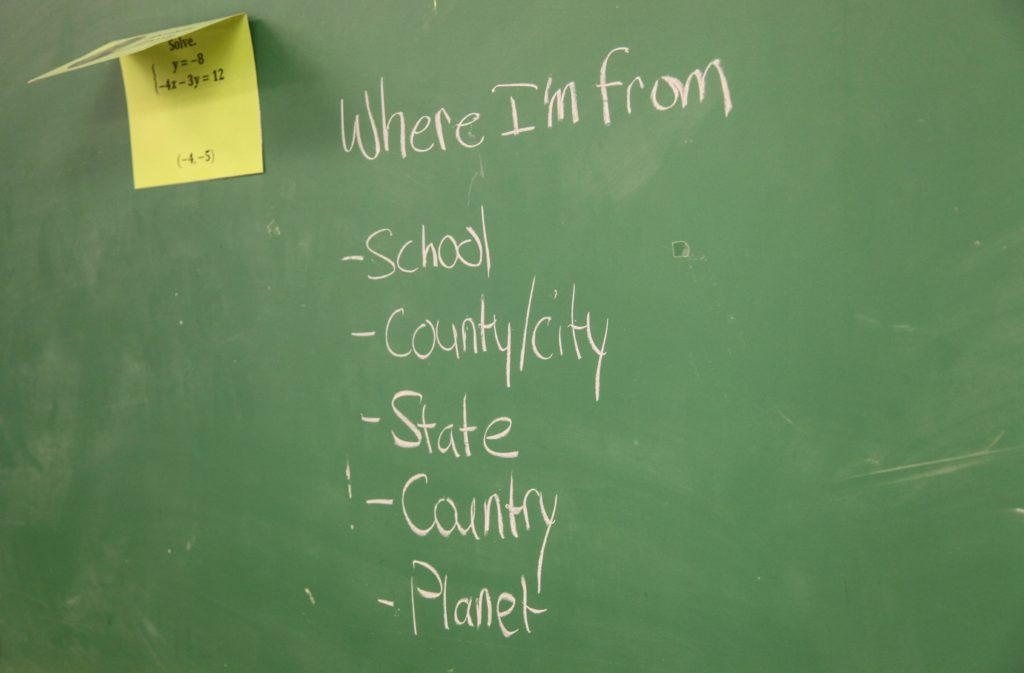 Solve.
y = -8
-4x - 3y = 12
(-4, -5)
Where I'm from
- School
- County/city
- State
- Country
- Planet